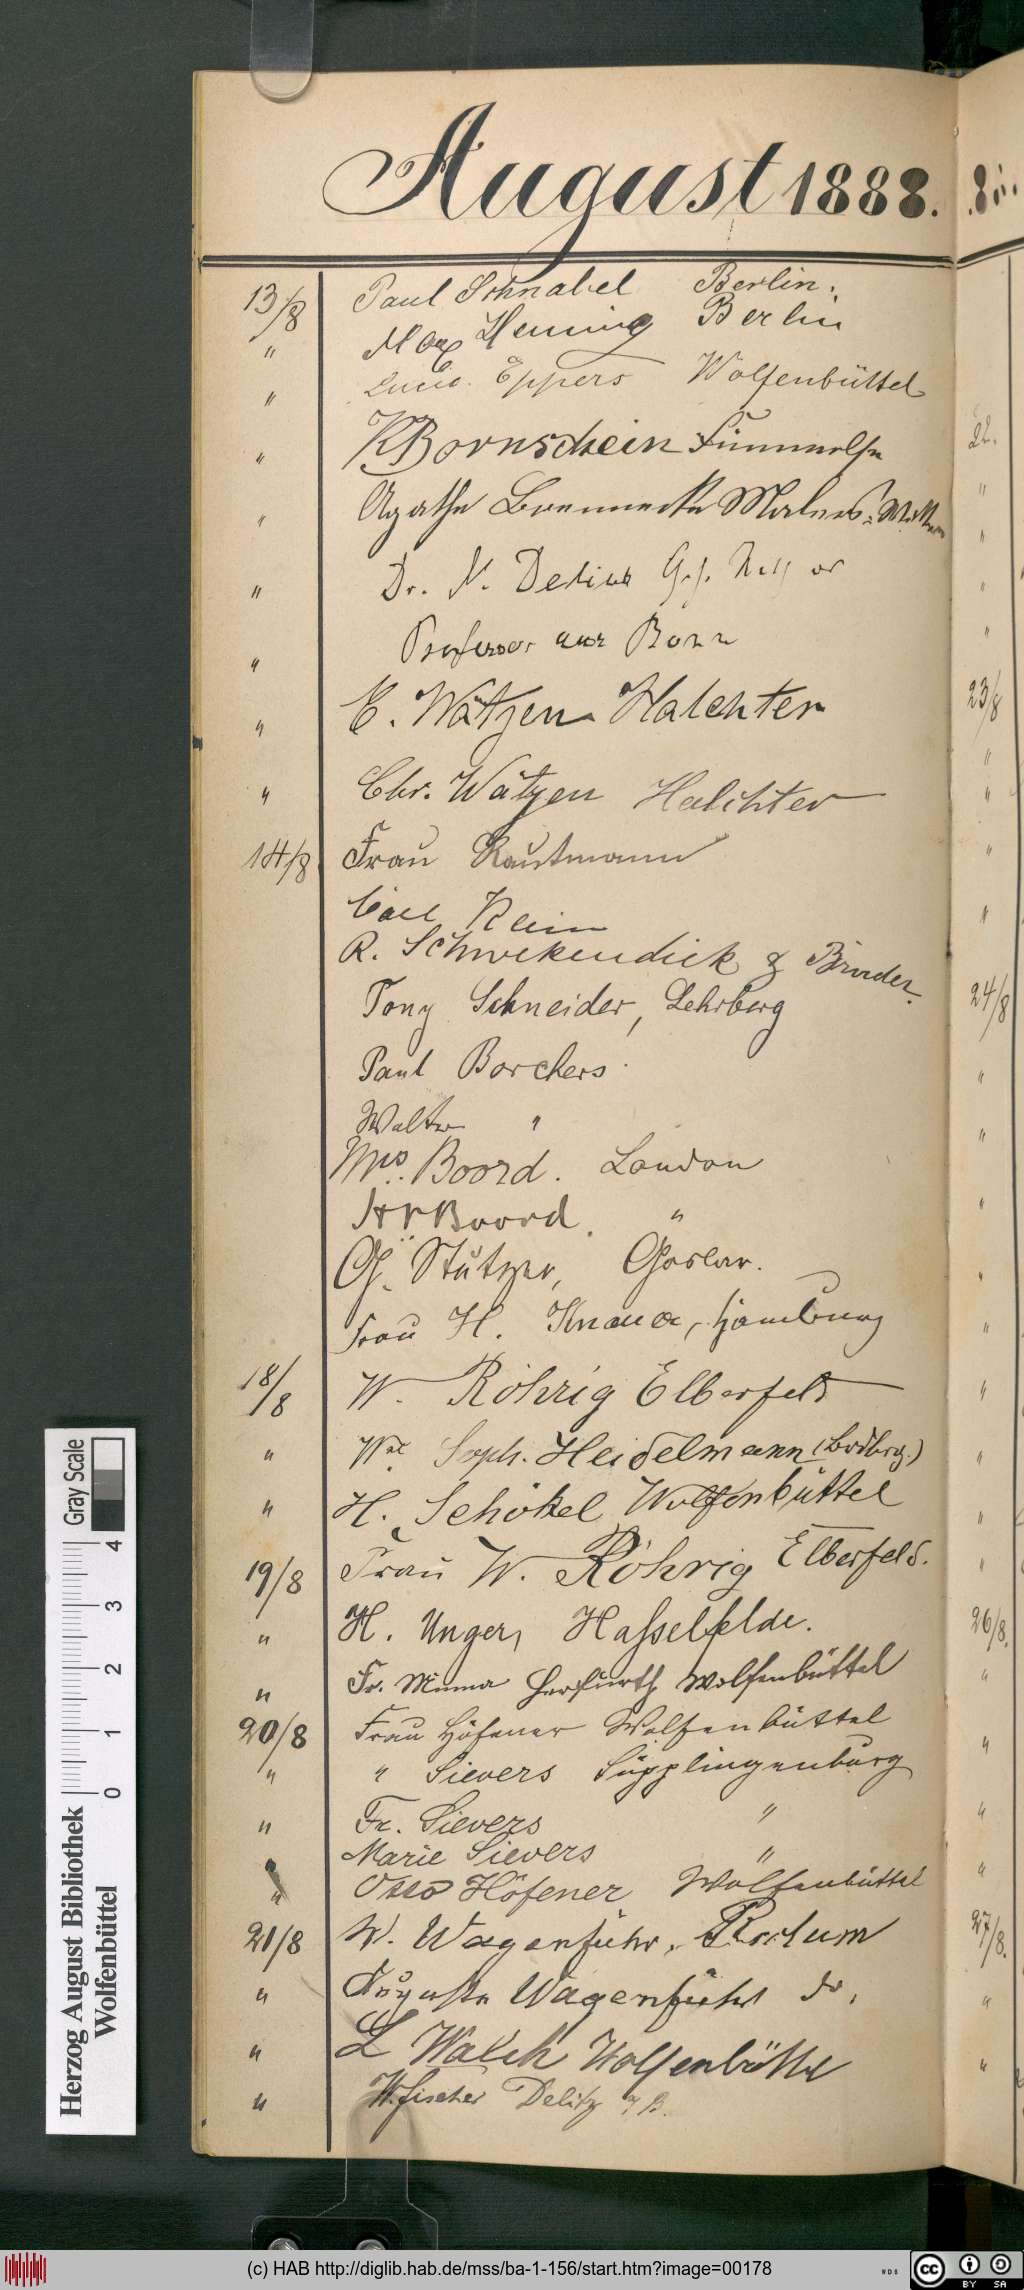 August 1888.
13/8 Paul Schnabel Berlin.
" Max Henning Berlin
" Eppers Wolfenbüttel
" K Bornschein Fümmelse
" Agathe
" Dr. N. Delius
" Professor aus Bonn
" E. Wätzen Halchter
" Chr. Wätzen Halchter
14/8 Frau Rautmann
Carl Rein
R. Schwekendiek & Bruder.
Tony Schneider, Lehrberg
Paul Borchers
Walter "
Mrs. Boord. London
Boord. "
G. Stutzer, Goslar.
Frau H. Knauer, Hamburg
18/8 W. Röhrig Elberfeld
" Soph. Heidelmann
" H. Schökel Wolfenbüttel
19/8 Frau W. Röhrig Elberfeld.
" H. Unger, Hasselfelde.
" Fr. Minna Herfurth Wolfenbüttel
20/8 Frau Höfener Wolfenbüttel
" " Sievers Süpplingenburg
" Fr. Sievers "
Marie Sievers "
" Otto Höfener Wolfenbüttel
21/8 W. Wagenführ,
" Auguste Wagenführ do.
" L Walch Wolfenbüttel
" W. Fischer Delitz a/B.
22.
23/8
24/8
26/8.
27/8.
Gray Scale
0 1 2 3 4
Herzog August Bibliothek
Wolfenbüttel
(c) HAB http://diglib.hab.de/mss/ba-1-156/start.htm?image=00178
WDB
cc BY SA